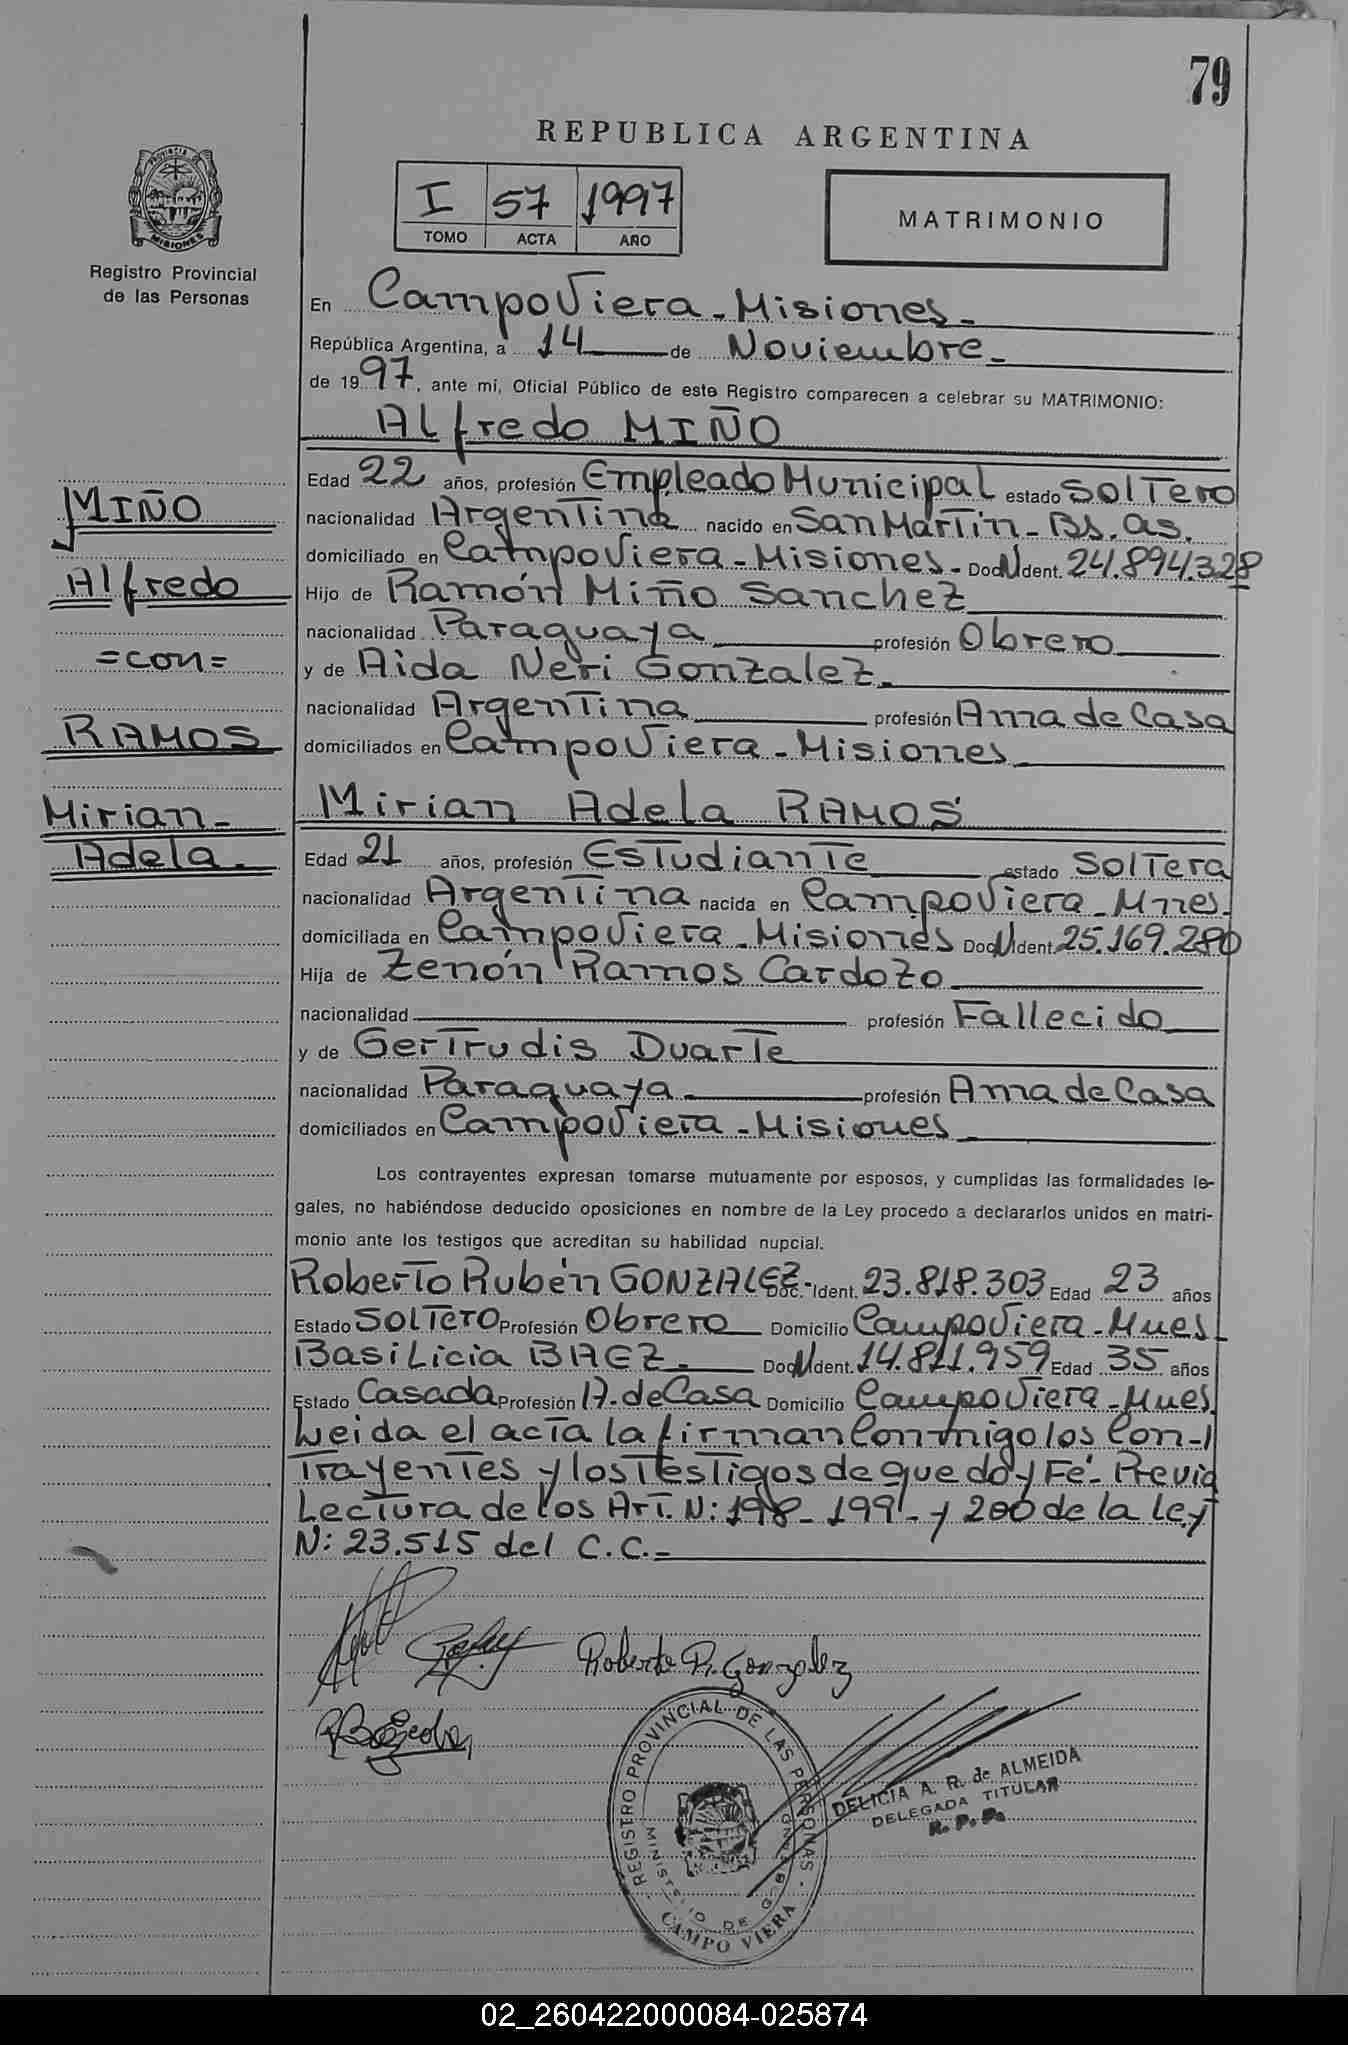 79
REPUBLICA ARGENTINA
I 57 1997
TOMO ACTA AÑO
MATRIMONIO
PROVINCIA DE
MISIONES
Registro Provincial
de las Personas
En CampoViera - Misiones -
República Argentina, a 14 de Noviembre -
de 1997, ante mi, Oficial Público de este Registro comparecen a celebrar su MATRIMONIO:
Alfredo MIÑO
Edad 22 años, profesión Empleado Municipal estado Soltero
nacionalidad Argentina nacido en San Martin - Bs. as.
domiciliado en CampoViera - Misiones - Doc N Ident. 24.894.328
Hijo de Ramón Miño Sanchez
nacionalidad Paraguaya profesión Obrero
y de Aida Neri Gonzalez.
nacionalidad Argentina profesión Ama de Casa
domiciliados en CampoViera - Misiones
MIÑO
Alfredo
=con=
RAMOS
Mirian -
Adela.
Mirian Adela RAMOS
Edad 21 años, profesión Estudiante estado Soltera
nacionalidad Argentina nacida en CampoViera - Mnes.
domiciliada en CampoViera - Misiones Doc N Ident. 25.169.280
Hija de Zenón Ramos Cardozo
nacionalidad profesión Fallecido
y de Gertrudis Duarte
nacionalidad Paraguaya profesión Ama de Casa
domiciliados en CampoViera - Misiones
Los contrayentes expresan tomarse mutuamente por esposos, y cumplidas las formalidades le-
gales, no habiéndose deducido oposiciones en nombre de la Ley procedo a declararlos unidos en matri-
monio ante los testigos que acreditan su habilidad nupcial.
Roberto Rubén GONZALEZ Doc.-Ident. 23.818.303 Edad 23 años
Estado Soltero Profesión Obrero Domicilio CampoViera - Mnes -
Basilicia BAEZ. Doc N Ident. 14.811.959 Edad 35 años
Estado Casada Profesión A. de Casa Domicilio CampoViera - Mnes.
Leida el acta la firman Conmigo los Con-
Trayentes y los Testigos de que doy Fé - Previa
Lectura de los Art. N: 198 - 199 - y 200 de la Ley
N: 23.515 del C.C. -
Roberto R. Gonzalez
REGISTRO PROVINCIAL DE LAS PERSONAS
MINISTERIO DE GOBIERNO
CAMPO VIERA
DELICIA A. R. de ALMEIDA
DELEGADA TITULAR
R. P. P.
02_260422000084-025874